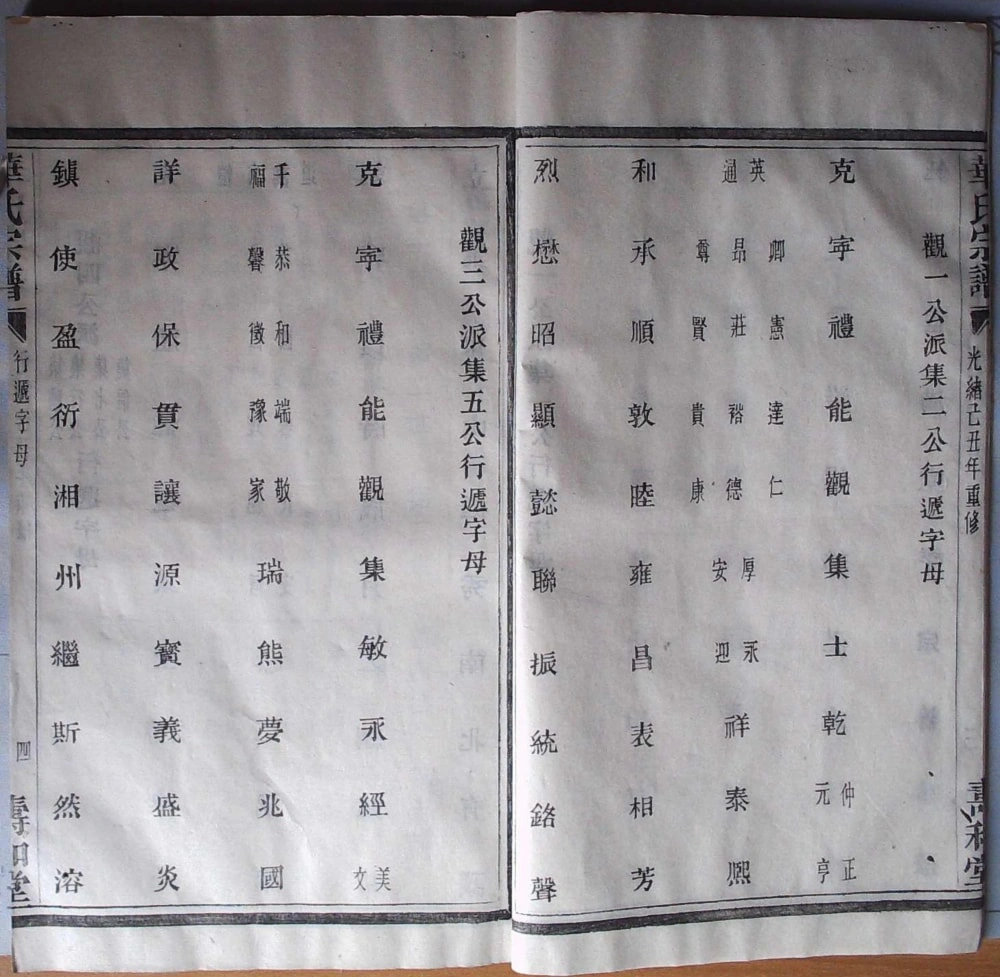 華氏宗譜
光緒己丑年重修
壽和堂
觀一公派集二公行遞字母
克寜禮能觀集士乾仲元正亨
英通卿昂尊憲莊賢達裕貴仁德康厚安永迎祥泰熈
和承順敦睦雍昌表相芳
烈懋昭顯懿聯振統銘聲
觀三公派集五公行遞字母
克寜禮能觀集敏永經美文
千福恭馨和徵端豫敬家瑞熊夢兆國
詳政保貫讓源寳義盛炎
鎮使盈衍湘州繼斯然溶
華氏宗譜
行遞字母
四
壽和堂